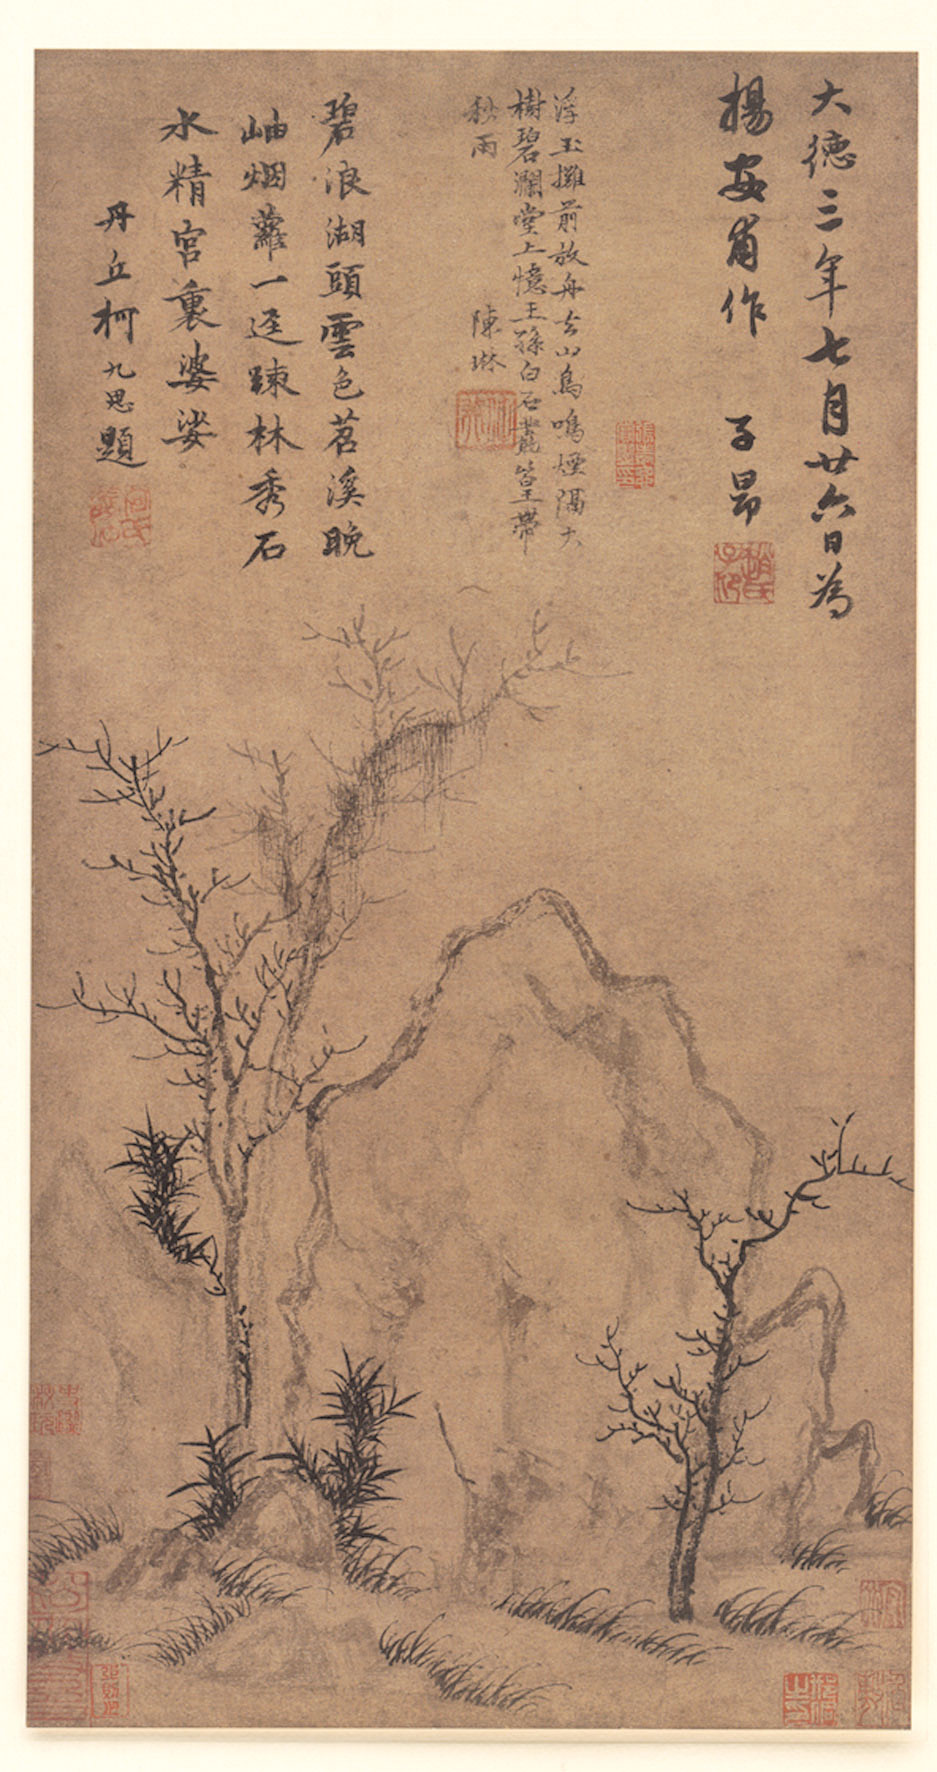 大德三年七月廿六日為
楊安甫作 子昂
浮玉攤前放舟去山鳥鳴煙隔大
樹碧瀾堂上憶王孫白石蒼篁帶
秋雨 陳琳
碧浪湖頭雲色苕溪晚
岫烟蘿一逕踈林秀石
水精宮裏婆娑
丹丘柯九思題
趙氏子昂
柯氏敬仲